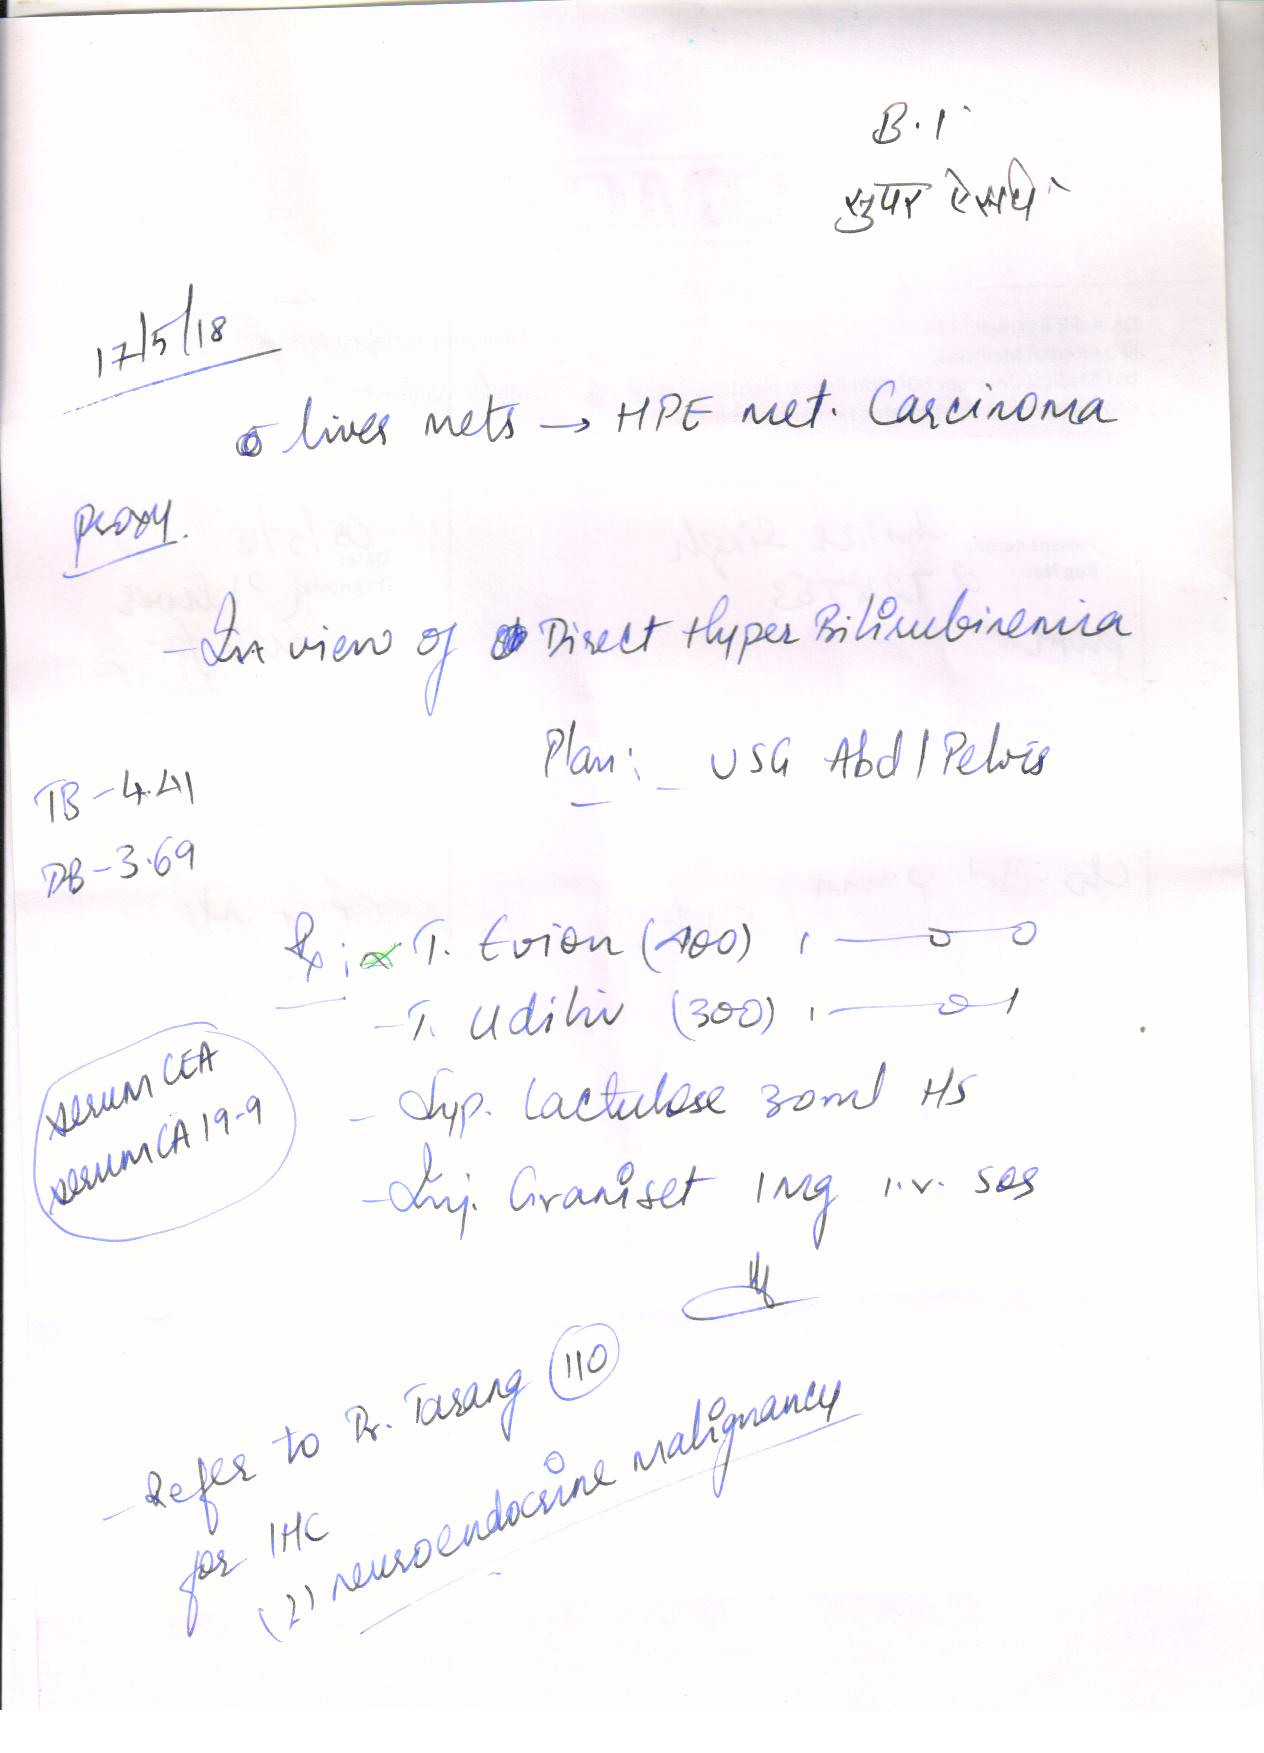 B.1
सुपर ऐसपी
17/5/18
liver mets → HPE met. Carcinoma
proxy.
- In view of Direct Hyper Bilirubinemia
Plan: - USG Abd/Pelvis
TB - 4.41
DB - 3.69
Rx: T. Evion (400) 1—0—0
- T. Udiliv (300) 1—0—1
- Syp. Lactulose 30ml HS
- Inj. Graniset 1mg i.v. sos
serum CEA
serum CA 19-9
- Refer to Dr. Tarang 110
for IHC
(?) neuroendocrine malignancy